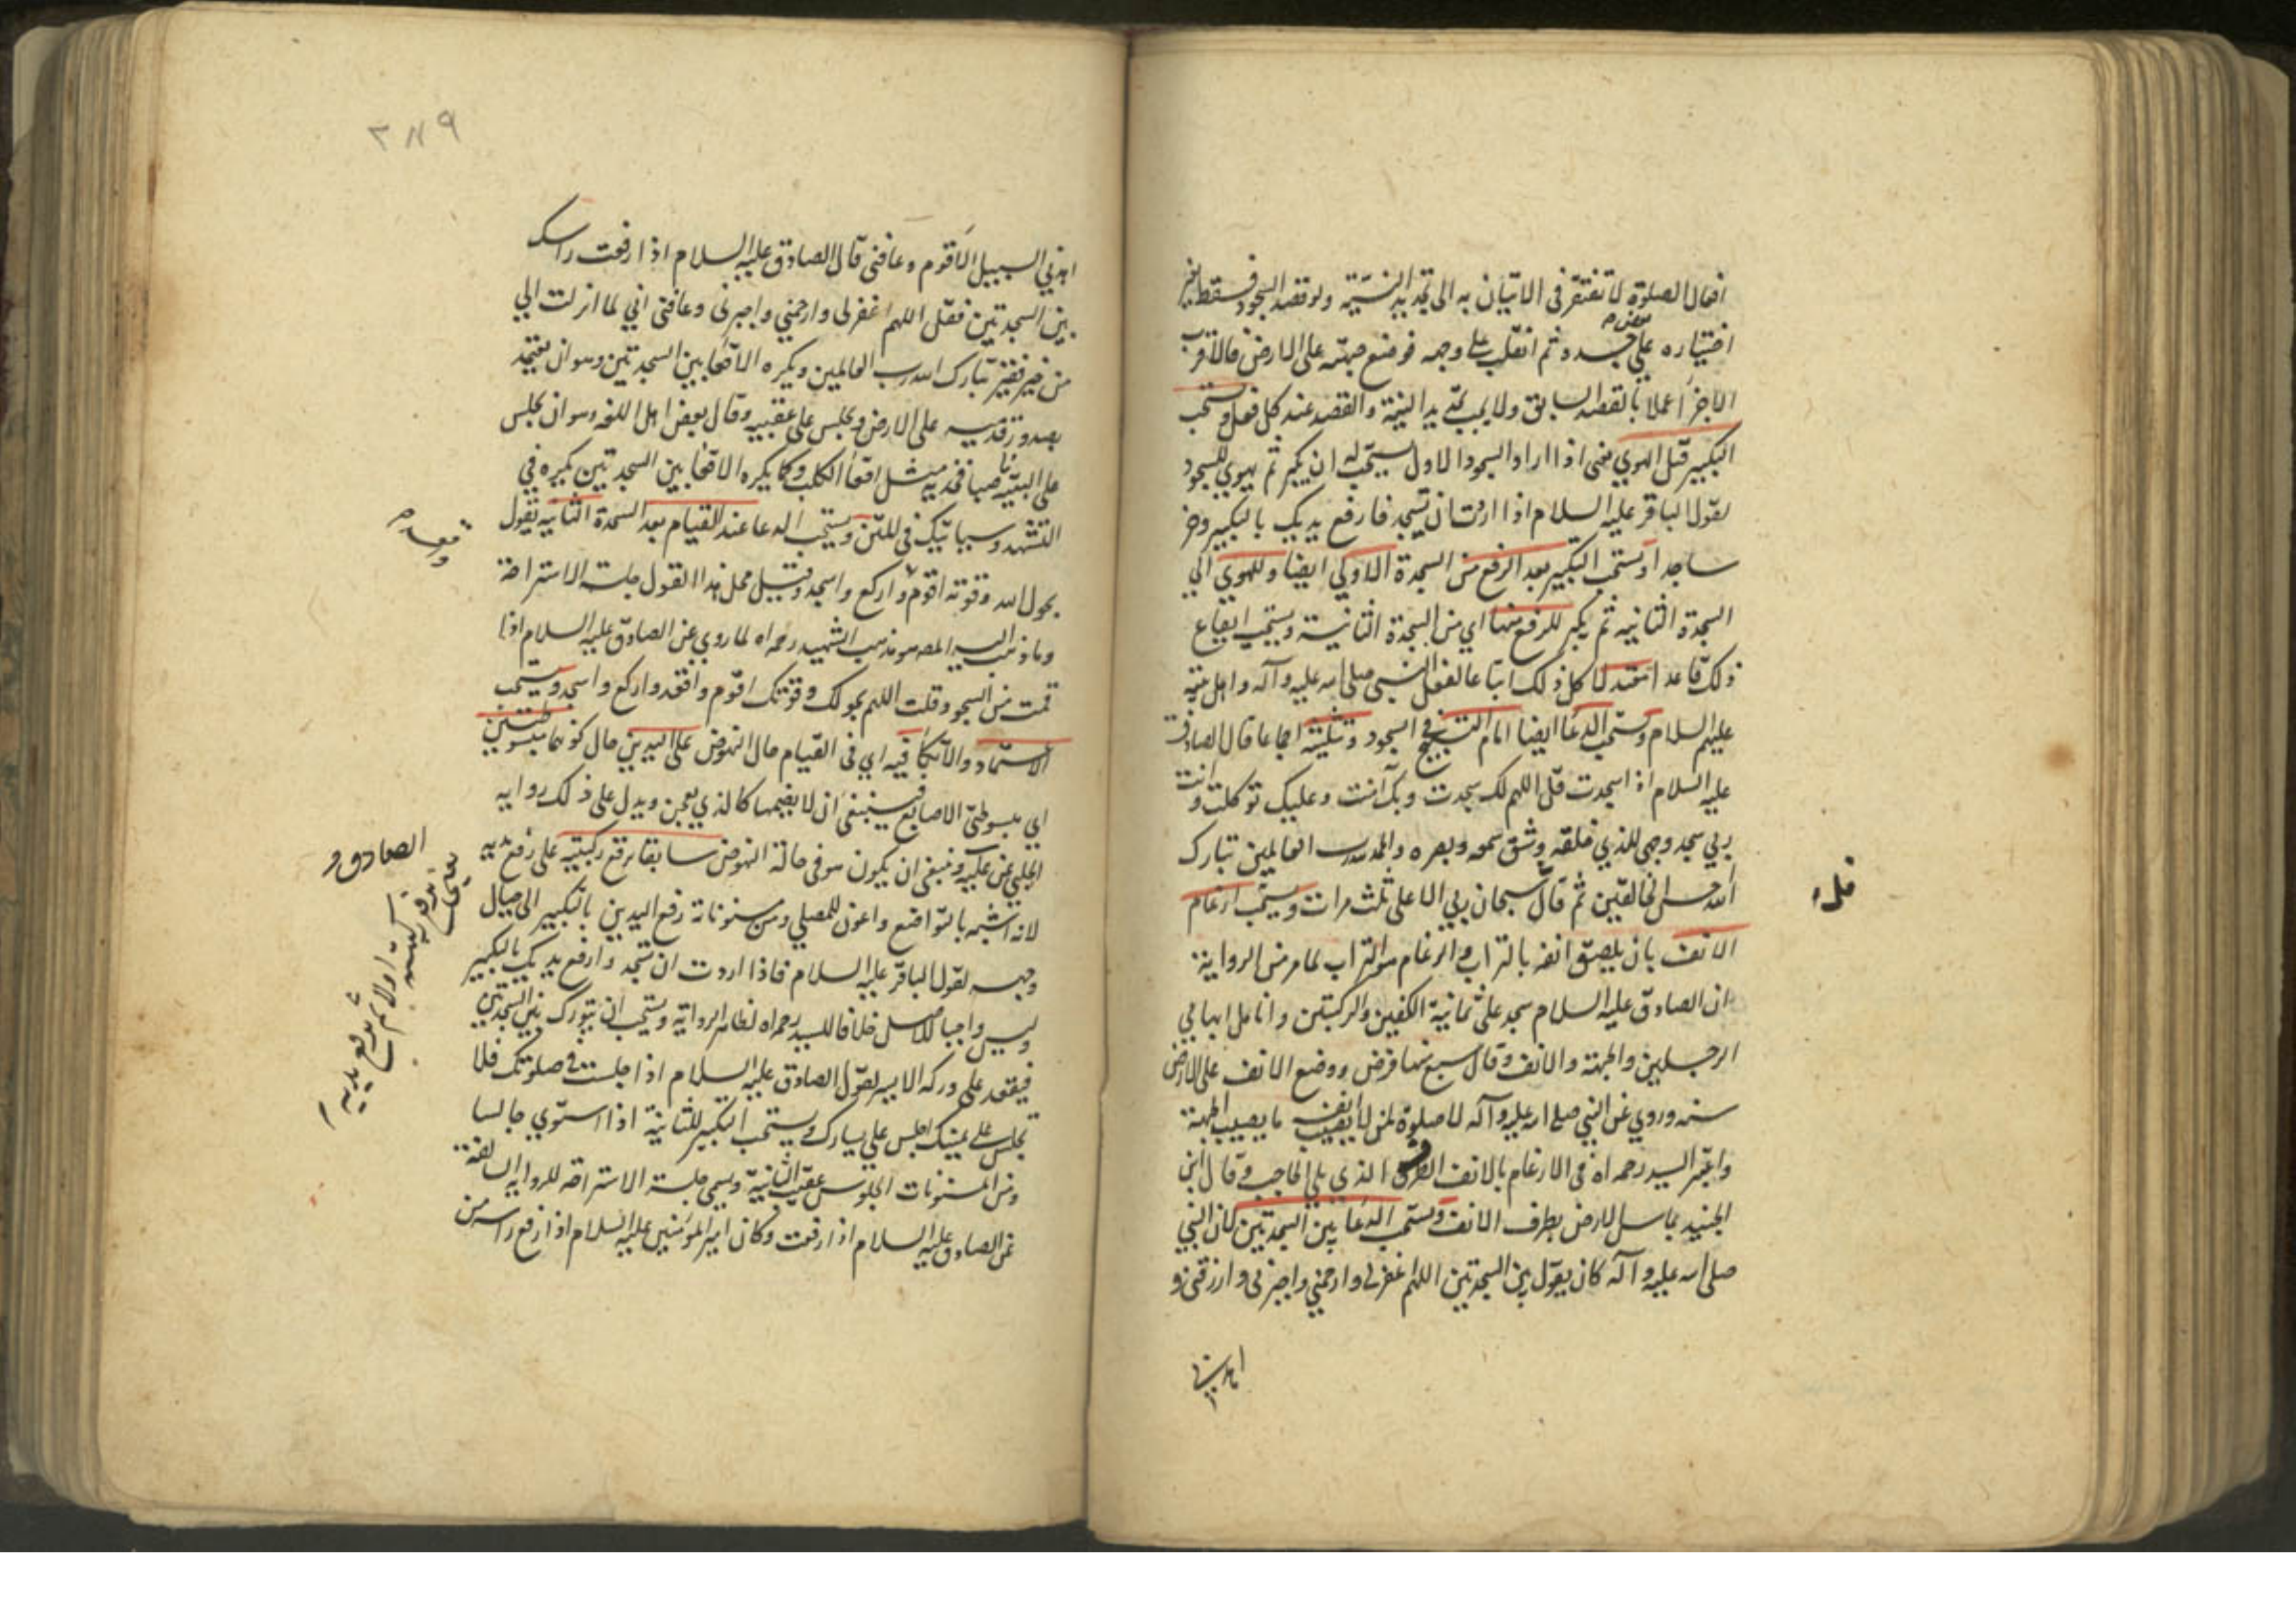 افعال الصلوة لا تفتقر فى الاتيان به الى تجديد النية ولو قصد السجود فسقط بغير
اختياره على جنبه ثم انقلب على وجهه فوضع جبهته على الارض فالاقرب
الاجزأ عملا بالقصد السابق ولا يجب تجديد النية والقصد عند كل فعل ويستحب
التكبير قبل الهوي يعنى اذا اراد السجود الاول يستحب له ان يكبر ثم يهوي للسجود
لقول الباقر عليه السلام اذا اردت ان تسجد فارفع يديك بالتكبير وخر
ساجدا ويستحب التكبير بعد الرفع من السجدة الاولى ايضا وللهوي الى
السجدة الثانية ثم يكبر للرفع منها اي من السجدة الثانية ويستحب ايقاع
ذلك قاعدا معتدلا كل ذلك اتباعا لفعل النبي صلى الله عليه وآله واهل بيته
عليهم السلام ويستحب الدعا ايضا امام التسبيح فى السجود وتثليثه اجماعا قال الصادق
عليه السلام اذا سجدت قل اللهم لك سجدت وبك آمنت وعليك توكلت وانت
ربي سجد وجهي للذي خلقه وشق سمعه وبصره والحمد لله رب العالمين تبارك
الله احسن الخالقين ثم قال سبحان ربي الاعلى ثلث مرات ويستحب ارغام
قل
الانف بان يلصق انفه بالتراب والرغام هو التراب لما مر من الرواية
ان الصادق عليه السلام سجد على ثمانية الكفين والركبتين وانامل ابهامي
الرجلين والجبهة والانف وقال سبع منها فرض ووضع الانف على الارض
سنة وروي عن النبي صلى الله عليه وآله لا صلوة لمن لا يصيب انفه ما يصيب الجبهة
واعتبر السيد رحمه الله فى الارغام بالانف الطرف الذي يلي الحاجب وقال ابن
الجنيد يماس الارض بطرف الانف ويستحب الدعا بين السجدتين كان النبي
صلى الله عليه وآله كان يقول بين السجدتين اللهم اغفر لى وارحمني واجبرنى وارزقنى و
اهدني
٢٨٩
اهدني السبيل الاقوم وعافنى قال الصادق عليه السلام اذا رفعت راسك
بين السجدتين فقل اللهم اغفر لى وارحمني واجبرنى وعافنى اني لما انزلت الي
من خير فقير تبارك الله رب العالمين ويكره الاقعا بين السجدتين وهو ان يعتمد
بصدور قدميه على الارض ويجلس على عقبيه وقال بعض اهل اللغه وهو ان يجلس
على اليتيه ناصبا فخذيه مثل اقعا الكلب وكما يكره الاقعا بين السجدتين يكره في
التشهد وسياتيك في المتن ويستحب الدعا عند القيام بعد السجدة الثانيه يقول
بحول الله وقوته اقوم واركع واسجد وقيل محل هذا القول جلسة الاستراحة
وما ذهب اليه المصه هو مذهب الشهيد رحمه الله لما روي عن الصادق عليه السلام اذا
قمت من السجود قلت اللهم بحولك وقوتك اقوم واقعد واركع واسجد ويستحب
الاستماد والاتكا فيه اي فى القيام حال النهوض على اليدين حال كونهما مبسوطتين
اي مبسوطتى الاصابع فينبغى ان لا يضمها كالذي يعجن ويدل على ذلك روايه
الحلبي عن عليه وينبغى ان يكون هو فى حالة النهوض سابقا برفع ركبتيه على رفع يديه
الصادق و
لانه اشبه بالتواضع واعون للمصلي ومن سنوناته رفع اليدين بالتكبير الى حيال
وجهه لقول الباقر عليه السلام فاذا اردت ان تسجد وارفع يديك بالتكبير
وليس واجبا للاصل خلافا للسيد رحمه الله لظاهر الرواية ويستحب ان يتورك بين السجدتين
فيقعد على وركه الايسر لقول الصادق عليه السلام اذا جلست فى صلوتك فلا
تجلس على يمينك اجلس على يسارك ويستحب التكبير للثانية اذا استوي جالسا
ومن المسنونات الجلوس عقيب الثانية ويسمى جلسة الاستراحة للرواية السالفة
عن الصادق عليه السلام اذا رفعت وكان امير المؤمنين عليه السلام اذا رفع راسه من